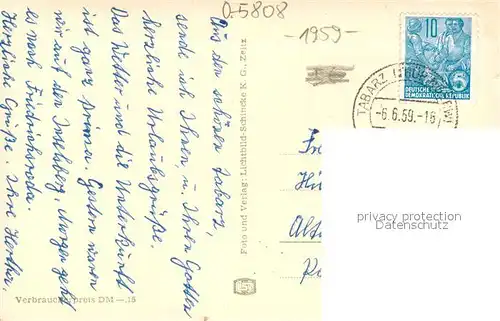 0-5808
-1959-
Aus dem schönen Tabarz,
sende ich Ihnen, u. Ihrem Gatten
herzliche Urlaubsgrüße.
Das Wetter und die Unterkunft
ist ganz prima. Gestern waren
wir auf dem Inselsberg, Morgen geht
es nach Friedrichsroda.
Herzliche Grüße. Ihre
Foto und Verlag: Lichtbild-Schincke K. G., Zeitz
Verbraucherpreis DM —.15
10
DEUTSCHE
DEMOKRATISCHE REPUBLIK
5
TABARZ
-6.6.59.-16
privacy protection
watermark